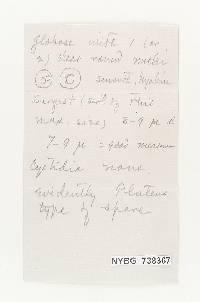 globose with 1 (or
2) clear round nuclei
smooth, hyaline
largest (
max. size) 8-9 µ d
7-9 µ = good measure
Cystidia none.
evidently Pluteus
type of spore
NYBG 738367